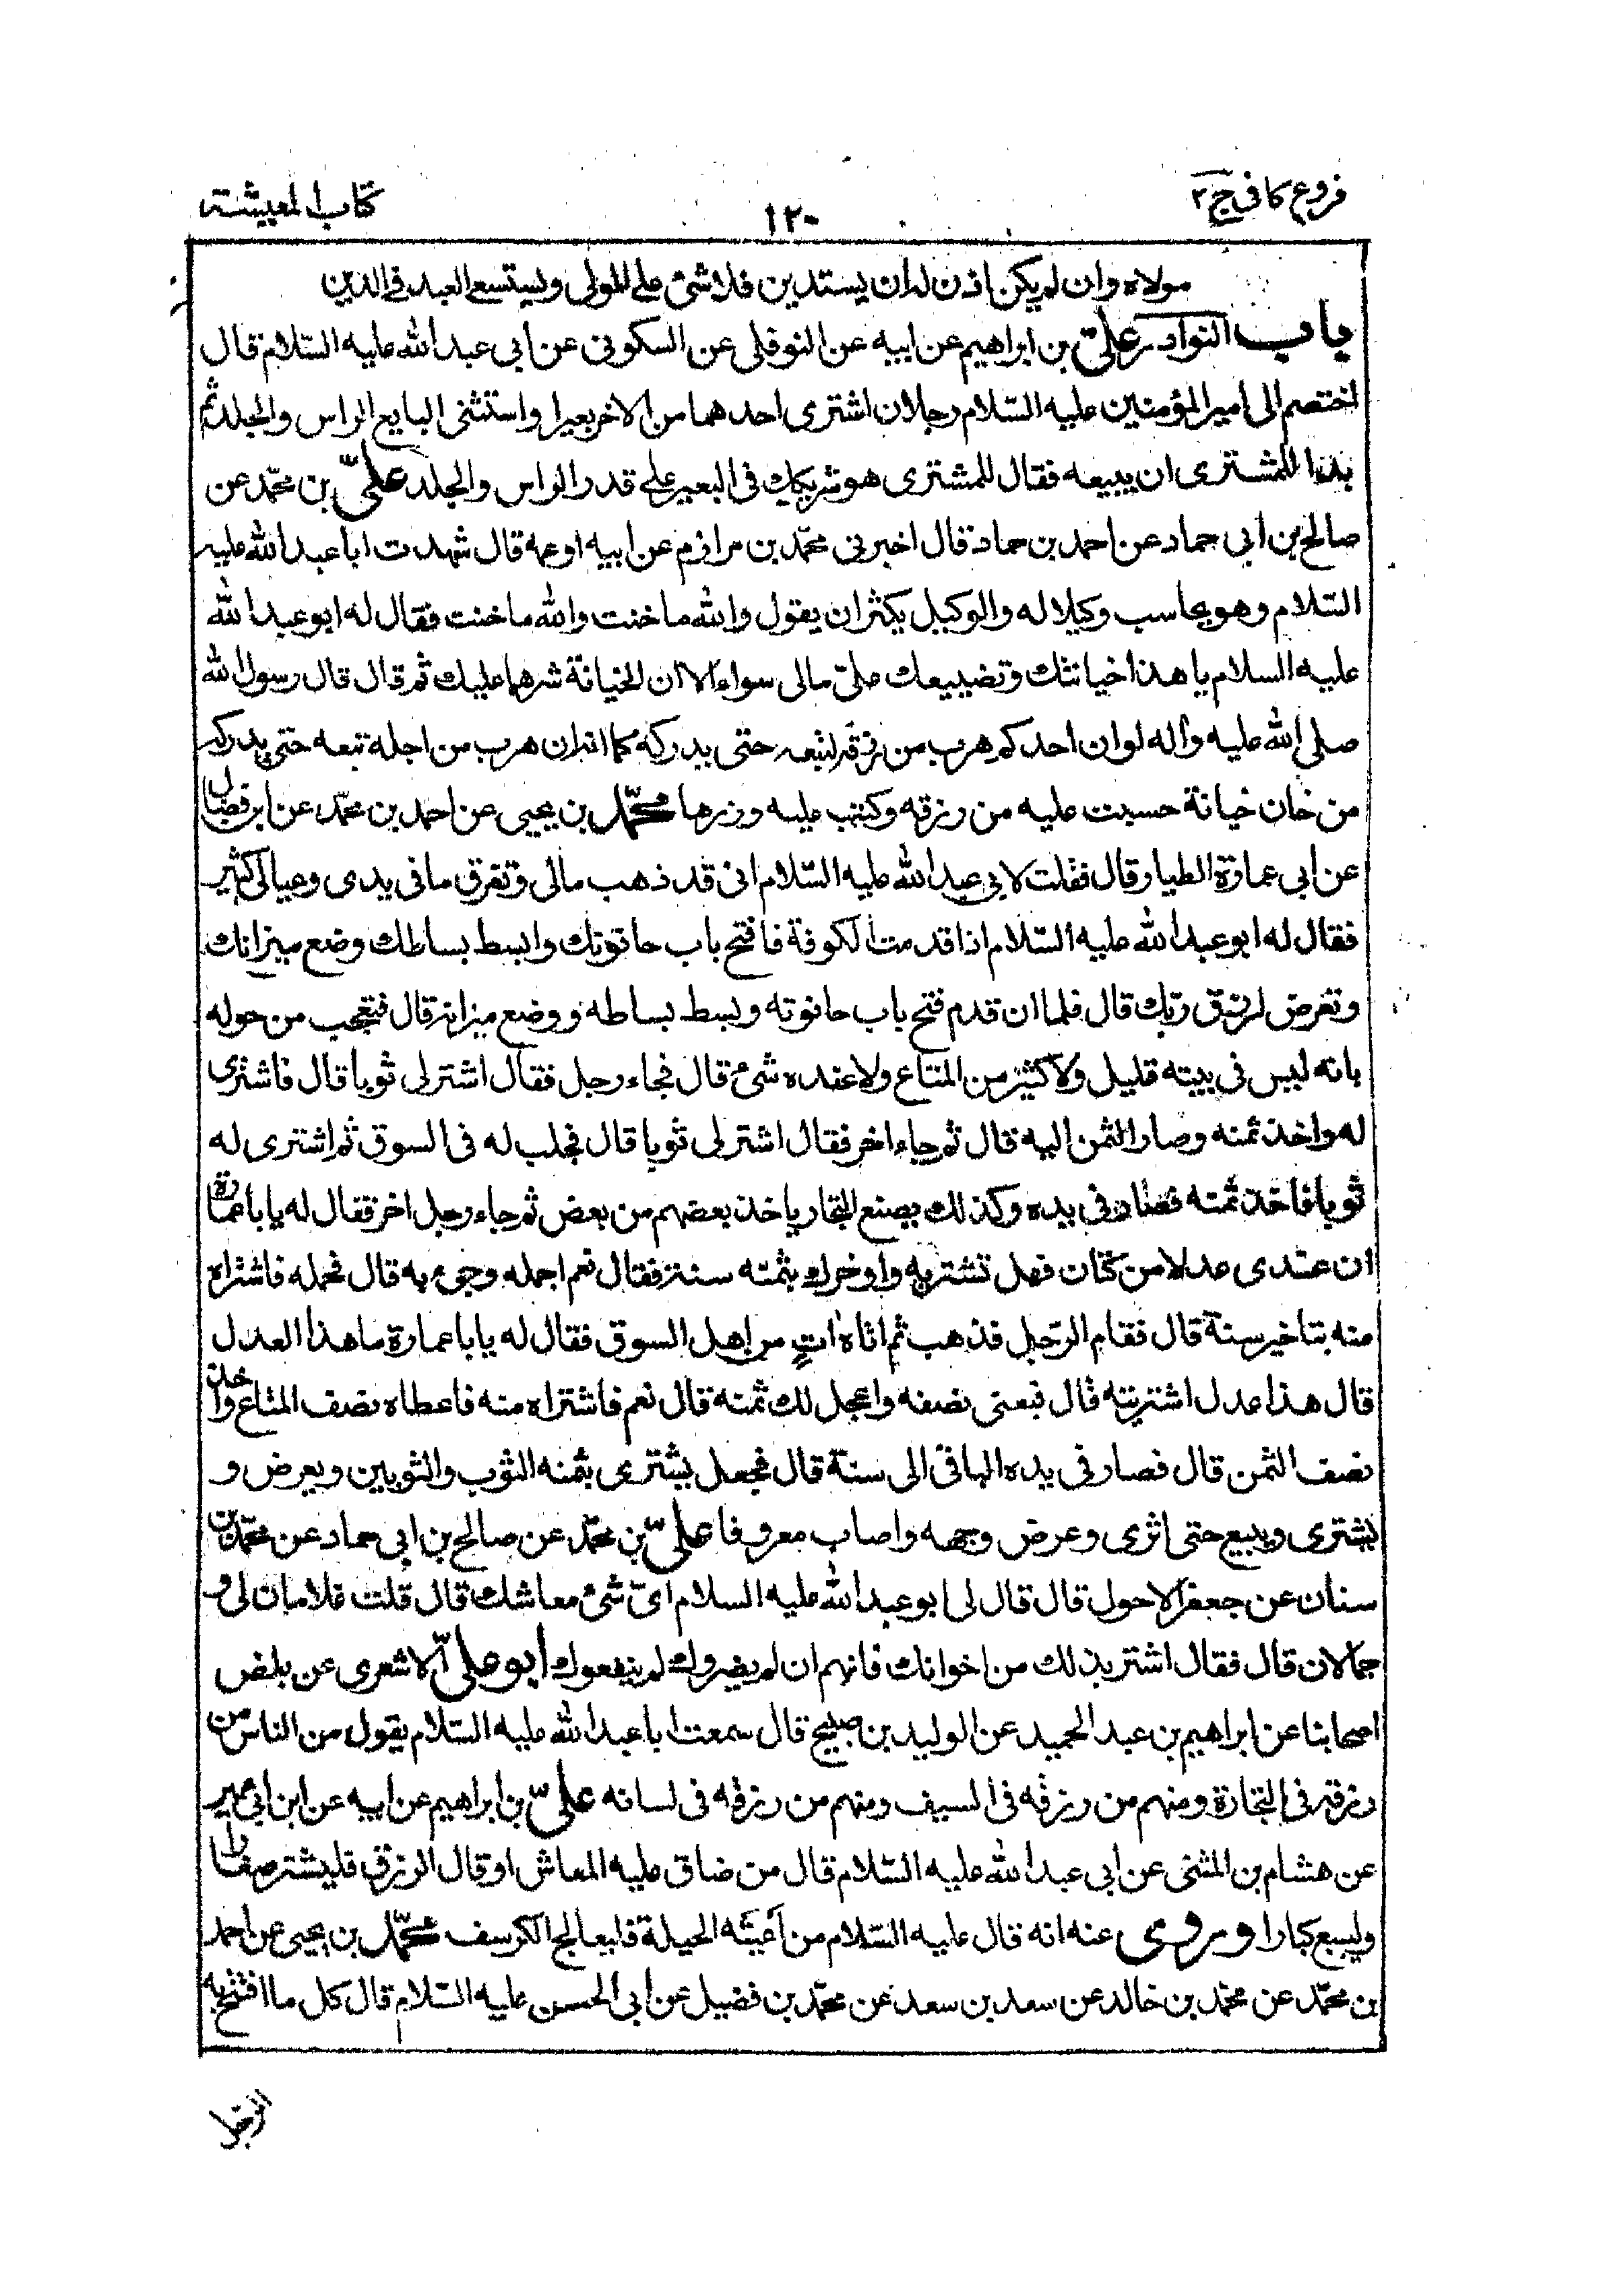 فروع كافى ج ٢
١٢٠
كتاب المعيشته
مولاه وان لم يكن اذن له ان يستدين فلا شئ على المولى ويستسعى العبد فى الدين
باب النوادر على بن ابراهيم عن ابيه عن النوفلى عن السكونى عن ابى عبد الله عليه السلام قال
اختصم الى امير المؤمنين عليه السلام رجلان اشترى احدهما من الاخر بعيرا واستثنى البايع الراس والجلد ثم
بدا للمشترى ان يبيعه فقال للمشترى هو شريكك فى البعير على قدر الراس والجلد علىّ بن محمّد عن
صالح بن ابى حماد عن احمد بن حماد قال اخبرنى محمّد بن مرازم عن ابيه او عمه قال شهدت ابا عبد الله عليه
السّلام وهو يحاسب وكيلا له والوكيل يكثر ان يقول والله ما خنت والله ما خنت فقال له ابو عبد الله
عليه السلام يا هذا خيانتك وتضييعك علىّ مالى سواء الا ان الخيانة شرهما عليك ثم قال قال رسول الله
صلى الله عليه وآله لو ان احدكم هرب من رزقه لتبعه حتى يدركه كما انه ان هرب من اجله تبعه حتى يدركه
من خان خيانة حسبت عليه من رزقه وكتب عليه وزرها محمّد بن يحيى عن احمد بن محمّد عن ابن فضال
عن ابى عمارة الطيار قال فقلت لابى عبد الله عليه السّلام انى قد ذهب مالى وتفرق ما فى يدى وعيالى كثير
فقال له ابو عبد الله عليه السّلام اذا قدمت الكوفة فافتح باب حانوتك وابسط بساطك وضع ميزانك
وتعرض لرزق ربّك قال فلما ان قدم فتح باب حانوته وبسط بساطه ووضع ميزانه قال فتعجب من حوله
بانه ليس فى بيته قليل ولا كثير من المتاع ولا عنده شئ قال فجاء رجل فقال اشتر لى ثوبا قال فاشترى
له واخذ ثمنه وصار الثمن اليه قال ثم جاء اخر فقال اشتر لى ثوبا قال فجلب له فى السوق ثم اشترى له
ثوبا فاخذ ثمنه فصار فى يده وكذلك يصنع التجار ياخذ بعضهم من بعض ثم جاء رجل اخر فقال له يا با عمارة
ان عندى عدلا من كتان فهل تشتريه واوخرك بثمنه سنة فقال نعم احمله وجئ به قال فحمله فاشتراه
منه بتاخير سنة قال فقام الرّجل فذهب ثم اتاه اتٍ من اهل السوق فقال له يا با عمارة ما هذا العدل
قال هذا عدل اشتريته قال فبعنى نصفه واعجل لك ثمنه قال نعم فاشتراه منه فاعطاه نصف المتاع واخذ
نصف الثمن قال فصار فى يده الباقى الى سنة قال فجعل يشترى بثمنه الثوب والثوبين ويعرض و
يشترى ويبيع حتى اثرى وعرض وجهه واصاب معروفا علىّ بن محمّد عن صالح بن ابى حماد عن محمّد بن
سنان عن جعفر الاحول قال قال لى ابو عبد الله عليه السلام اىّ شئ معاشك قال قلت غلامان لى و
جملان قال فقال اشتر بذلك من اخوانك فانهم ان لم يضروك لم ينفعوك ابو علىّ الاشعرى عن بعض
اصحابنا عن ابراهيم بن عبد الحميد عن الوليد بن صبيح قال سمعت ابا عبد الله عليه السّلام يقول من الناس من
رزقه فى التجارة ومنهم من رزقه فى السيف ومنهم من رزقه فى لسانه علىّ بن ابراهيم عن ابيه عن ابن ابى عمير
عن هشام بن المثنى عن ابى عبد الله عليه السّلام قال من ضاق عليه المعاش او قال الرزق فليشتر صغارا
وليبع كبارا وروى عنه انه قال عليه السّلام من اعيته الحيلة فليعالج الكرسف محمّد بن يحيى عن احمد
بن محمّد عن محمّد بن خالد عن سعد بن سعد عن محمّد بن فضيل عن ابى الحسن عليه السّلام قال كل ما افتتح به
الرجل